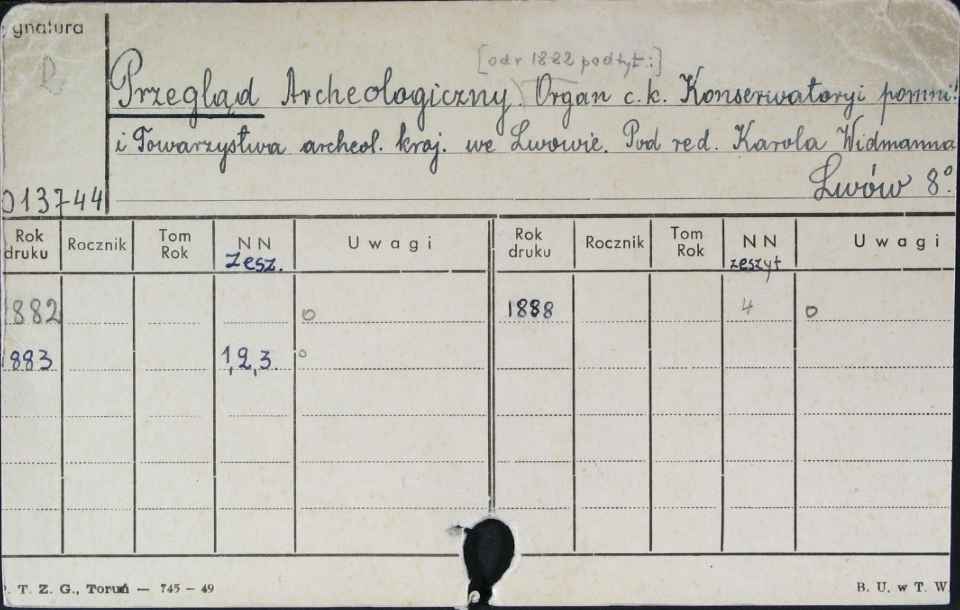 ygnatura
D
[od r 1882 podtyt.:]
Przegląd Archeologiczny. Organ c. k. Konserwatoryi pomni!
i Towarzystwa archeol. kraj. we Lwowie. Pod red. Karola Widmanna
Lwów 8º.
013744
Rok druku Rocznik Tom Rok NN zesz. Uwagi Rok druku Rocznik Tom Rok NN zeszyt Uwagi
1882 0 1888 4 0
1883 1, 2, 3. 0
. T. Z. G., Toruń — 745 - 49 B. U. w T. W